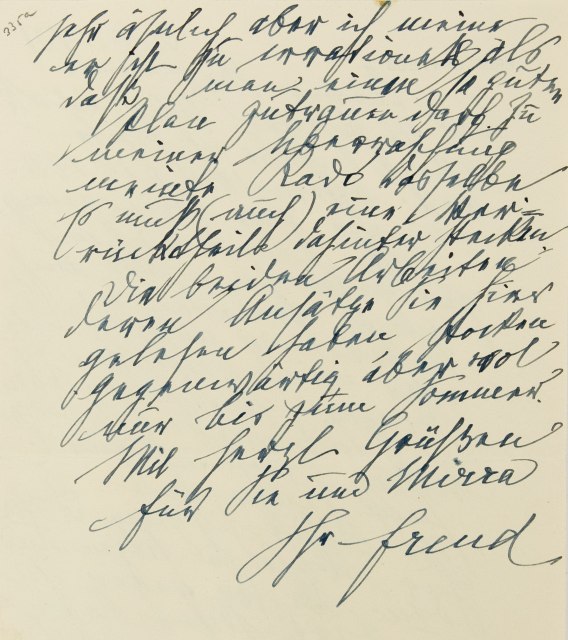 335a
sehr ähnlich aber ich meine
er ist zu irrationell als
daß man einen so guten
Plan zutrauen darf. Zu
meiner Überraschung
meinte Rado dasselbe
Es muß (auch) eine Ver-
rücktheit dahinter stecken.
Die beiden Arbeiten,
deren Ansätze Sie hier
gelesen haben stocken
gegenwärtig aber wol
nur bis zum Sommer.
Mit herzl Grüßen
für Sie und Mirra
Ihr Freud